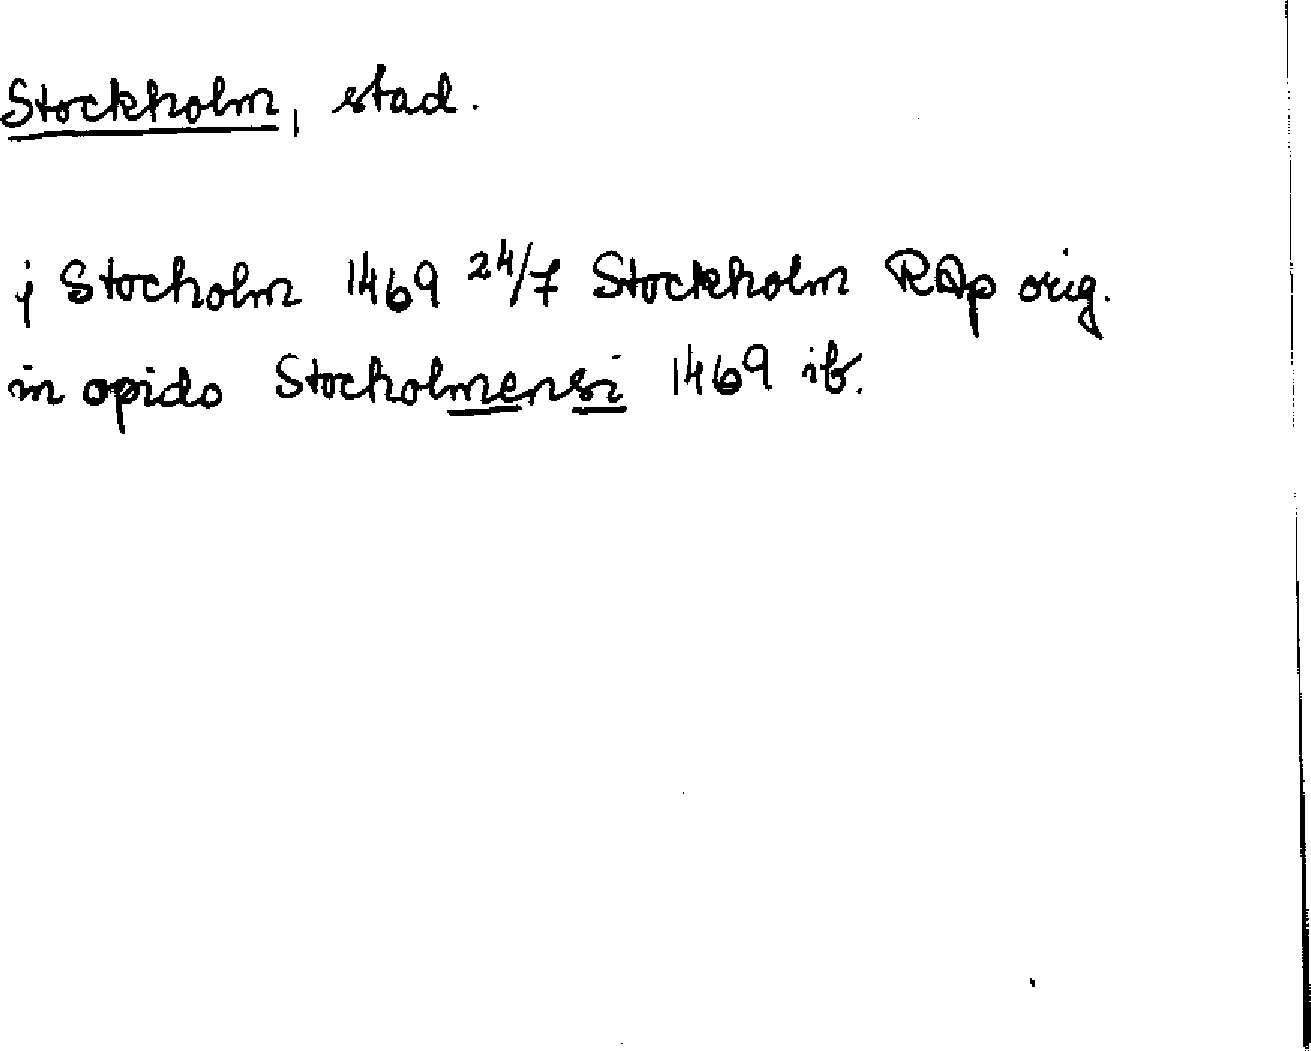 Stockholm, stad.
j Stocholm 1469 24/7 Stockholm RAp orig.
in opido Stocholmensi 1469 ib.